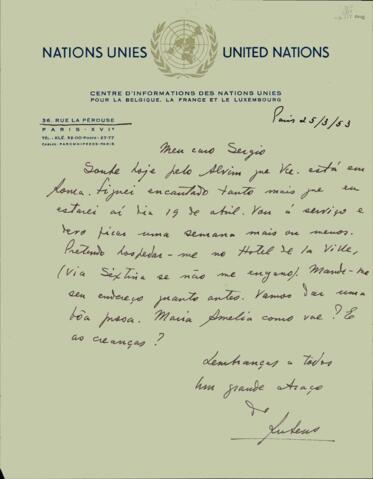 NATIONS UNIES UNITED NATIONS
CENTRE D'INFORMATIONS DES NATIONS UNIES
POUR LA BELGIQUE, LA FRANCE ET LE LUXEMBOURG
36, RUE LA PÉROUSE
PARIS-XVIe
TÉL.: KLÉ. 52-00 Poste: 27-77
Paris 25/3/53
Meu caro Sergio
Soube hoje pelo Alvim que Vce. está em
Roma. Fiquei encantado tanto mais que eu
estarei aí dia 19 de abril. Vou á serviço e
devo ficar uma semana mais ou menos.
Pretendo hospedar-me no Hotel de la Ville,
(via Sixtina se não me engano). Mande-me
seu endereço quanto antes. Vamos dar uma
bôa prosa. Maria Amelia como vae? E
as creanças?
Lembranças a todos
Um grande abraço
do
Rubens